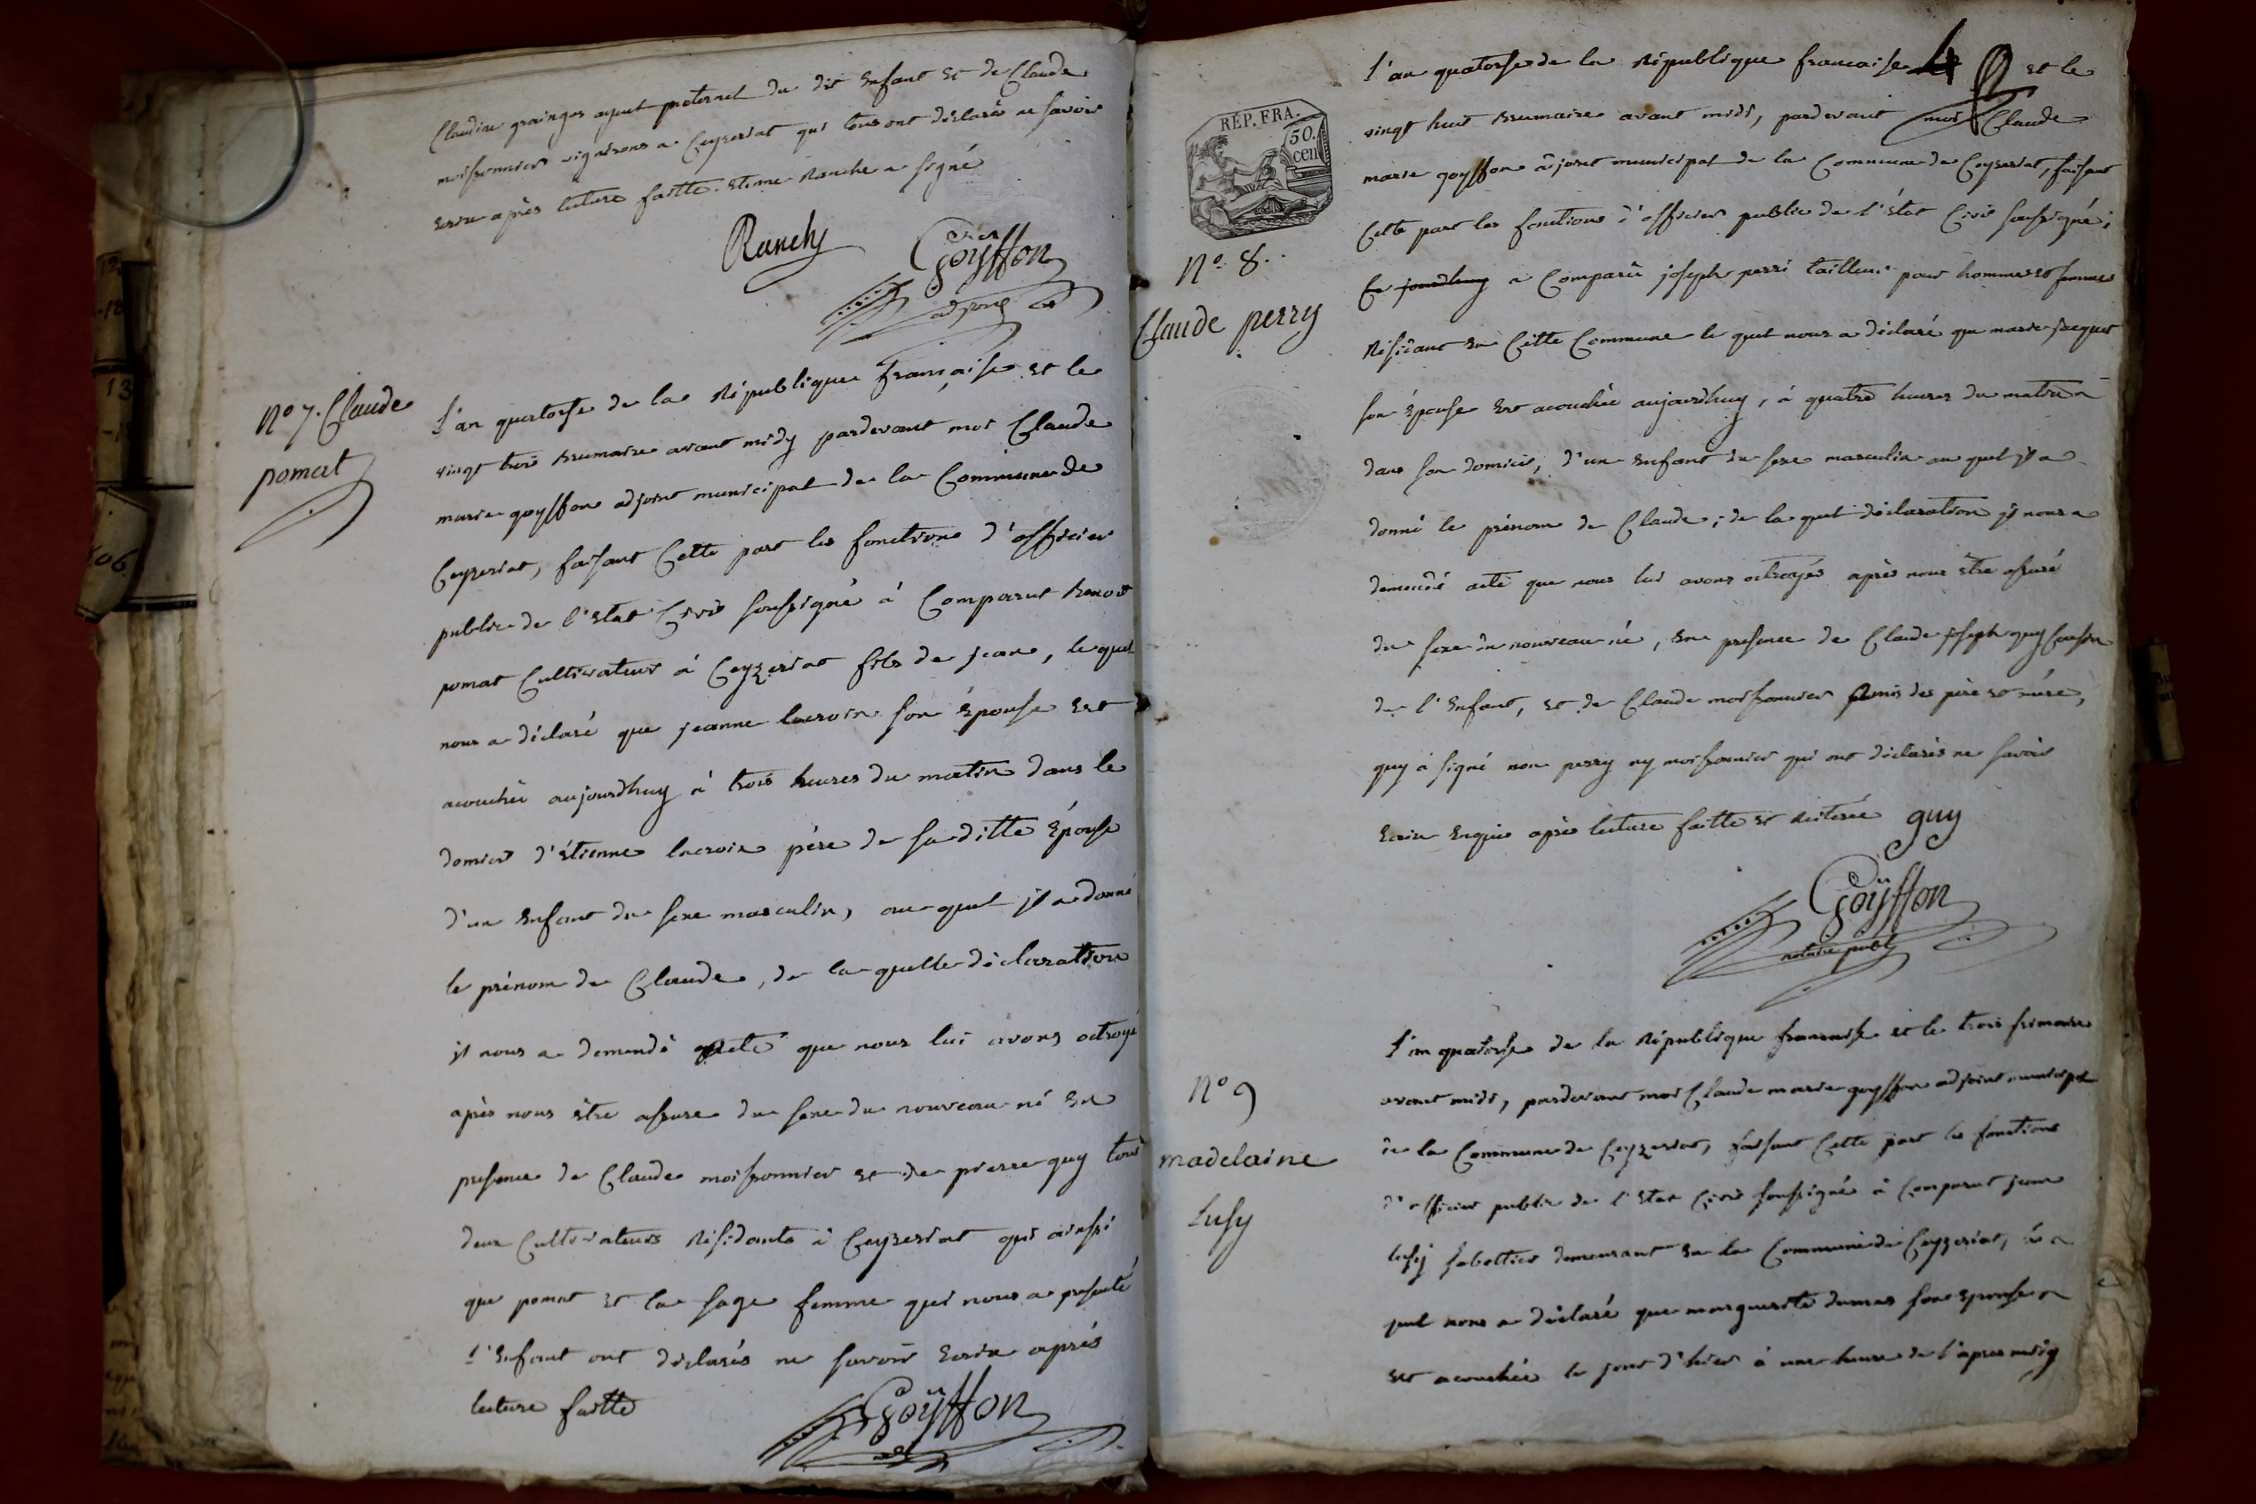 Claudine grainger ayeut paternel du dit Enfant Et de Claude
moissonnier vignerons a Ceyzeriat qui tous ont déclarés ne savoir
Ecrire après luture faitte. Etienne Ranche a signé
Ranchy
Goÿffon
adjoint
N° 7. Claude
pomat
L'an quatorse de la République française et le
vingt trois Brumaire avant midy pardevant moi Claude
marie goyffon adjoint municipal de la Commune de
Ceyzeriat, faisant Cette part les fonctions d'officier
public de l'Etat Civil soussigné à Comparut Benoit
pomat Cultivateur à Ceyzeriat fils de jean, le quel
nous a déclaré que jeanne lacroix son Épouse Est
acouchée aujourdhuy à trois heures du matin dans le
domicil d'Étienne lacroix père de sa ditte Épouse
d'un Enfant du sexe masculin, au quel jl a donné
le prénom de Claude, de la quelle déclaration
jl nous a demandé acte que nous lui avons octroyé
après nous être assure du sexe du nouveau né En
presence de Claude moissonnier et de pierre guy tous
deux Cultivateurs Résidants à Ceyzeriat qui ainssi
que pomat Et la sage femme qui nous a presenté
l'Enfant ont déclarés ne savoir Ecrire après
luture faitte
Goÿffon
adj
RÉP. FRA.
50.
cen
N° 8.
Claude perry
L'an quatorse de la République francaise et le
vingt huit Brumaire avant midi, pardevant moi Claude
marie goyffon adjoint municipal de la Commune de Ceyzeriat, faisant
Cette part les fonctions d'officier public de l'État Civil soussigné;
a Comparû joseph perri tailleur pour hommes et femmes
Résidant En Cette Commune le quel nous a déclaré que marie jacquet
son Épouse Est acouchée aujourdhuy, à quatre heures du matin
dans son domicil, d'un Enfant du sexe masculin au quel jl a
donné le prénom de Claude; de la quel déclaration jl nous a
demandé acte que nous lui avons octroyés après nous être assuré
du sexe du nouveau né, En presence de Claude joseph guy Cousin
de l'Enfant, Et de Claude moissonnier amis des père et mère,
guy à signé non perry ny moissonnier qui ont déclarés ne savoir
Ecrire Enquis après luture faitte Et Réiterée guy
Goÿffon
notaire publ
N° 9
madelaine
Lusy
L'an quatorse de la République francaise et le trois frimaire
avant midi, pardevant moi Claude marie goyffon adjoint municipal
de la Commune de Ceyzeriat, faisant Cette part les fonctions
d'officier public de l'Etat Civil soussigné à Comparut jean
lusy sabottier demeurant En la Commune de Ceyzeriat, le
quel nous a déclaré que marguerite dumas son Epouse
Est acouchée le jour d'hier à une heure de l'apres midy